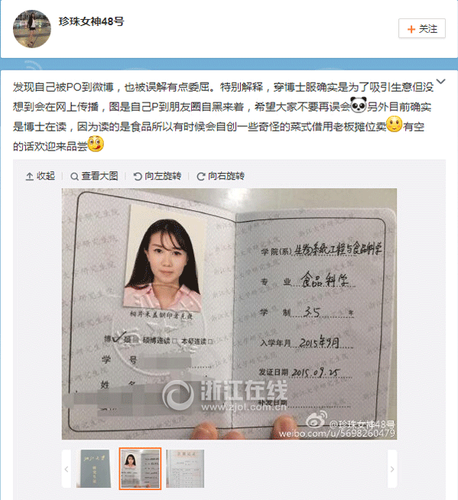 珍珠女神48号
+ 关注
发现自己被PO到微博，也被误解有点委屈。特别解释，穿博士服确实是为了吸引生意但没
想到会在网上传播，图是自己P到朋友圈自黑来着，希望大家不要再误会 另外目前确实
是博士在读，因为读的是食品所以有时候会自创一些奇怪的菜式借用老板摊位卖 有空
的话欢迎来品尝
收起 查看大图 向左旋转 向右旋转
学院(系) 生物系统工程与食品科学
专 业 食品科学
学 制 3.5 年
入学年月 2015年9月
发证日期 2015.09.25
补发日期
相片未盖钢印者无效
博 硕博连读 本 连读
学 号
姓 名
浙江在线
www.zjol.com.cn
@珍珠女神48号
weibo.com/u/5698260479